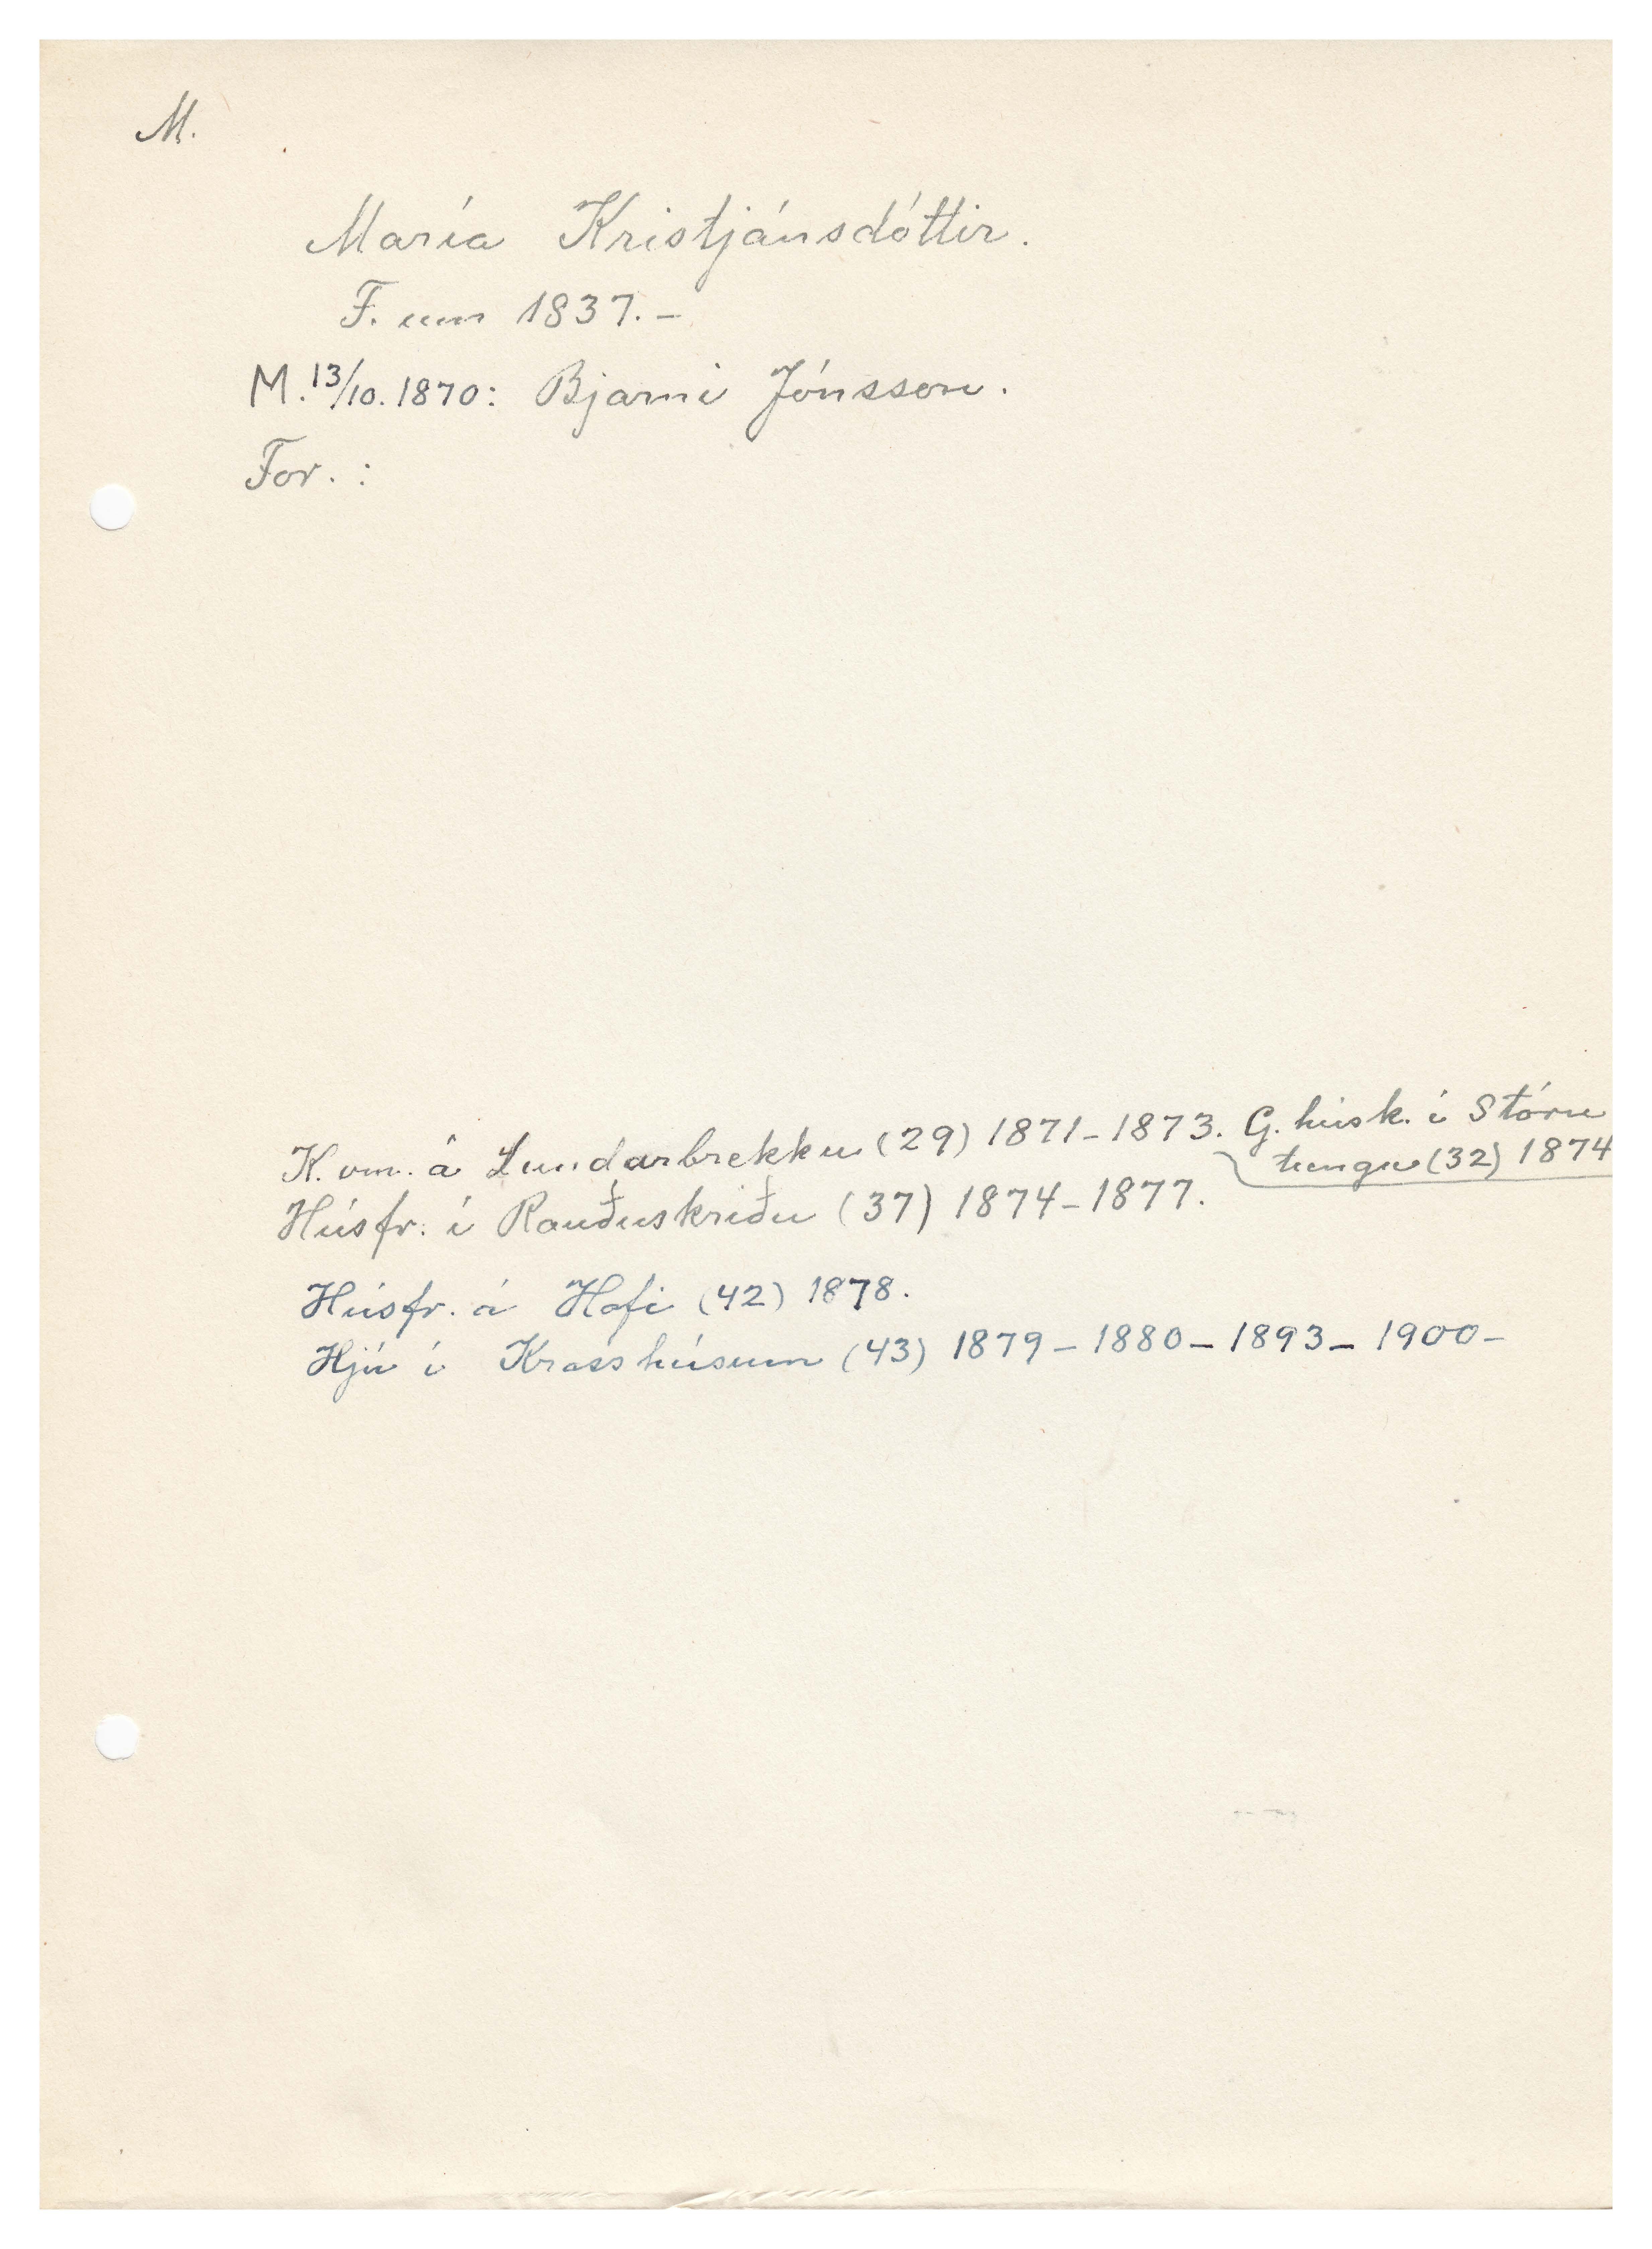 M.
María Kristjánsdóttir.
F. um 1837.-
M. 13/10. 1870: Bjarni Jónsson.
For. :
K. vm. á Lundarbrekku (29) 1871-1873. G. húsk. í Stóru
tungu (32) 1874
Húsfr. í Rauðuskriðu (37) 1874-1877.
Húsfr. á Hofi (42) 1878.
Hjú í Krosshúsum (43) 1879-1880-1893-1900-